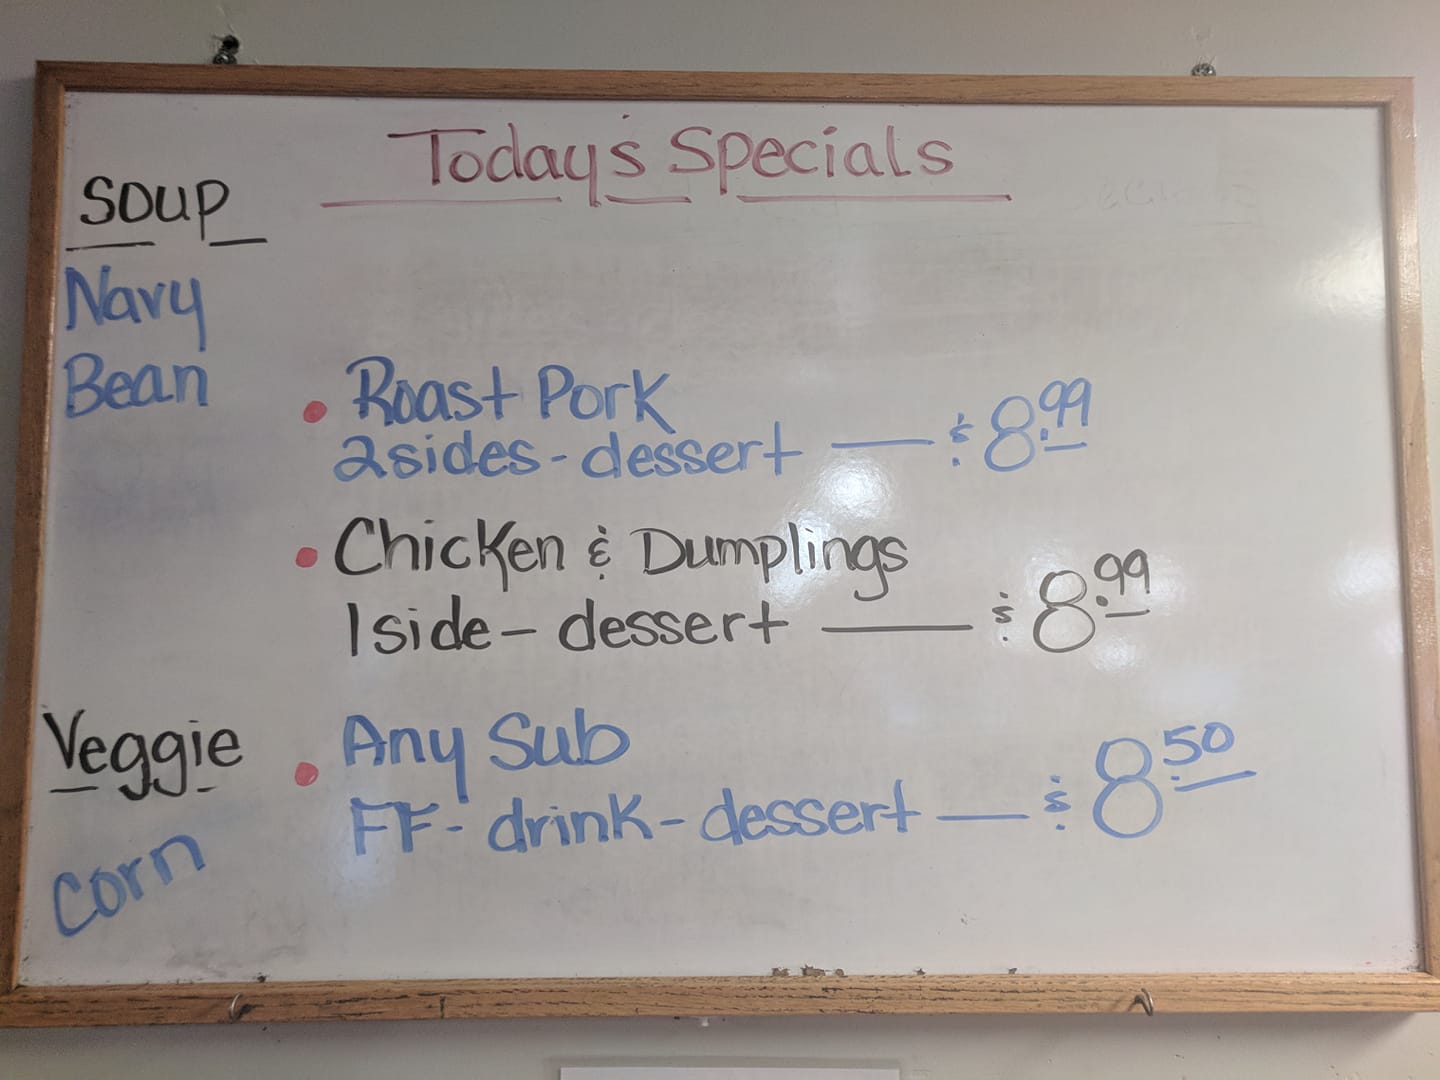 Today's Specials
Soup
Navy
Bean
• Roast Pork
2 sides - dessert — $8.99
• Chicken & Dumplings
1 side - dessert — $8.99
Veggie
Corn
• Any Sub
FF - drink - dessert — $8.50